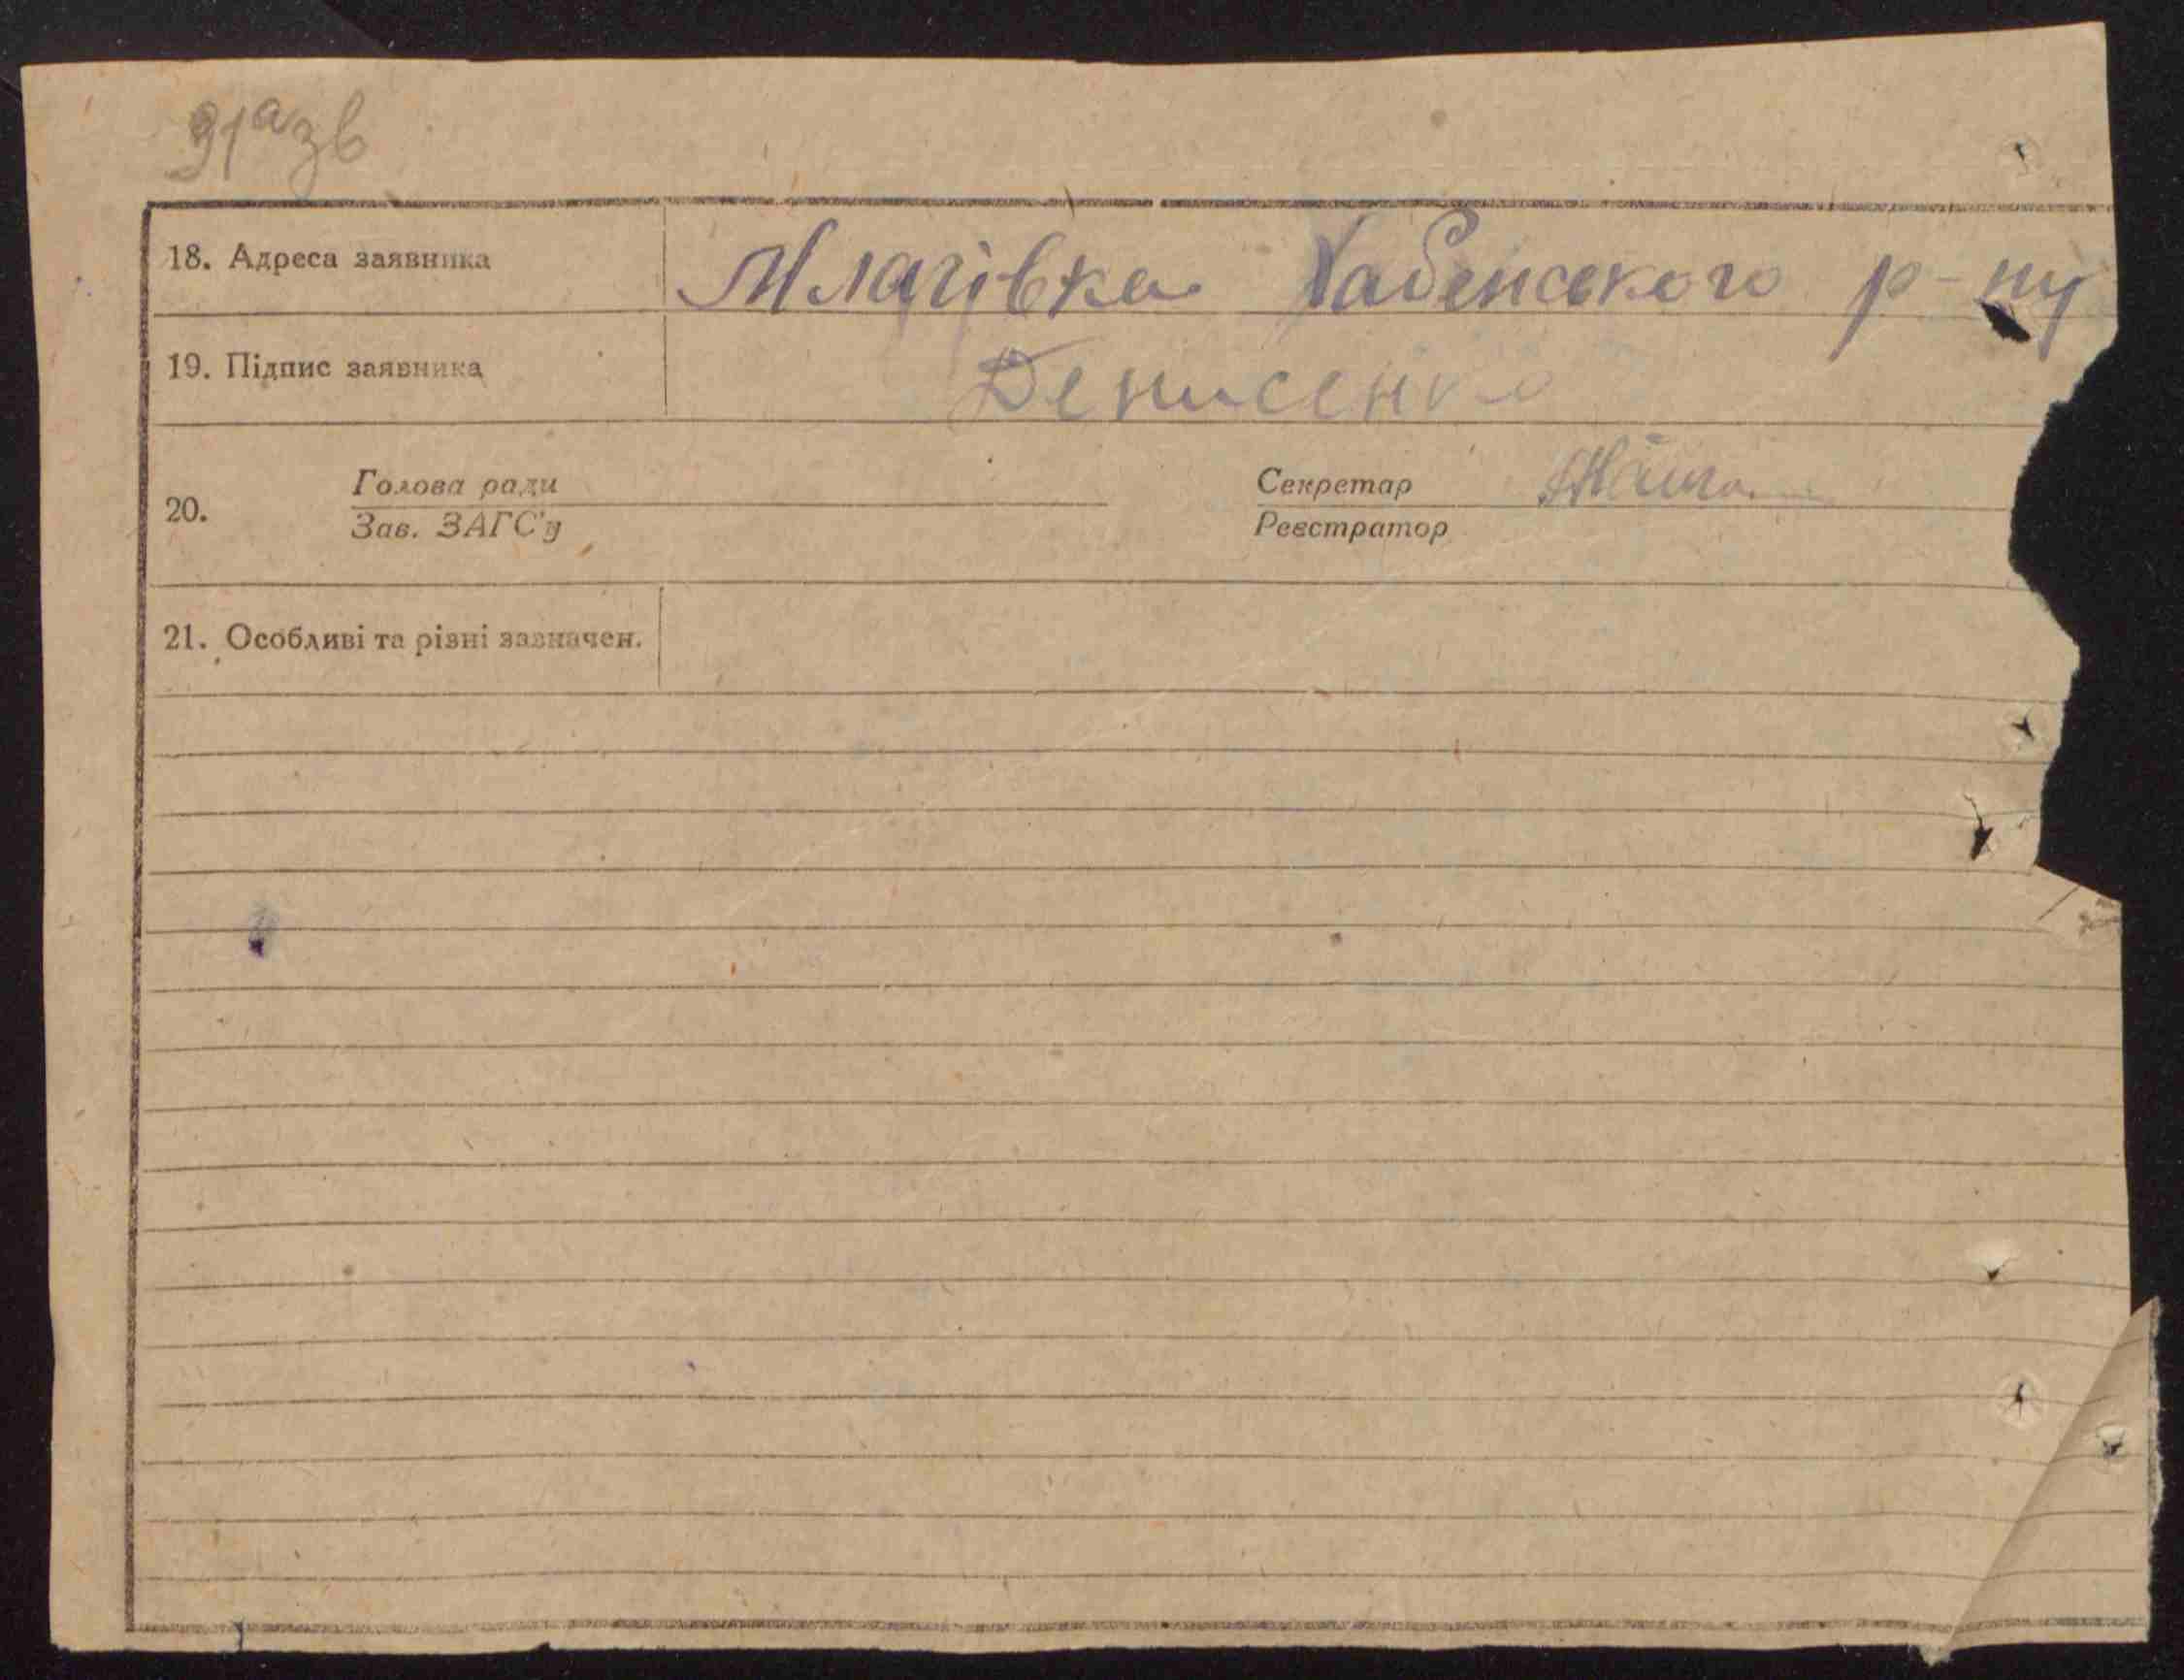 91а зв
18. Адреса заявника Млачівка Хабенського р-ну
19. Підпис заявника Денисенко
20. Голова ради Секретар
Зав. ЗАГС'у Реєстратор
21. Особливі та різні зазначен.